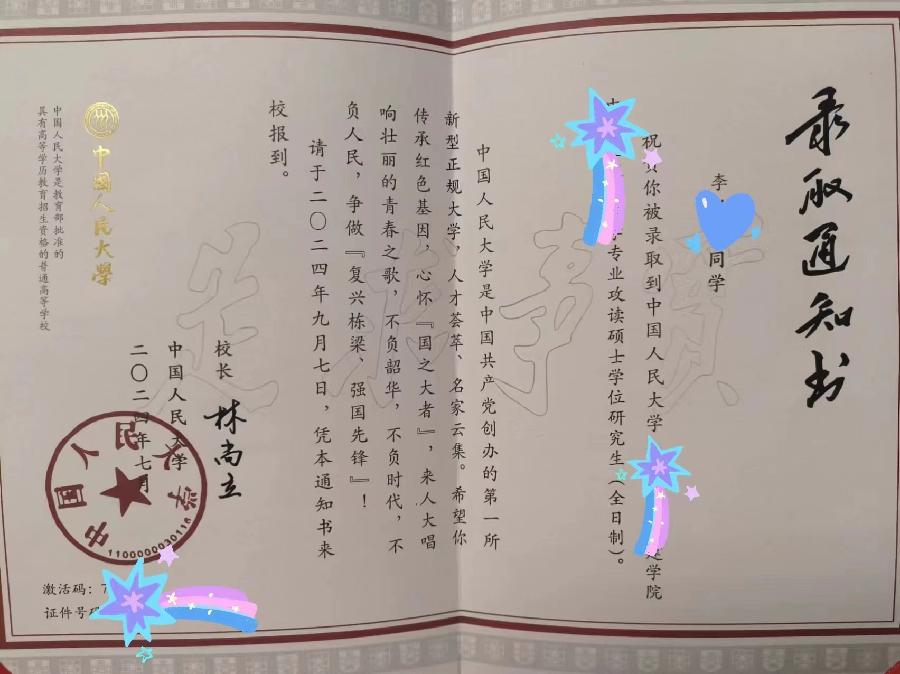 录取通知书
李 同学
祝贺你被录取到中国人民大学 学院
专业攻读硕士学位研究生（全日制）。
中国人民大学是中国共产党创办的第一所
新型正规大学，人才荟萃、名家云集。希望你
传承红色基因，心怀『国之大者』，来人大唱
响壮丽的青春之歌，不负韶华，不负时代，不
负人民，争做『复兴栋梁、强国先锋』！
请于二〇二四年九月七日，凭本通知书来
校报到。
校长 林尚立
中国人民大学
二〇二四年七月
中國人民大學
中国人民大学是教育部批准的
具有高等学历教育招生资格的普通高等学校
实事求是
中国人民大学
1100000030116
激活码：7
证件号码